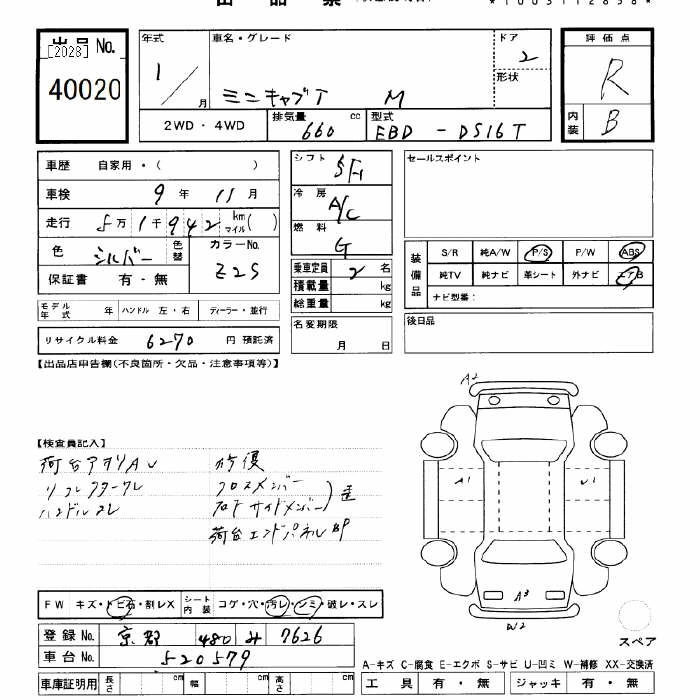 出品票
*1003112858*
出品No.
[2028]
40020
年式 1/ 月
車名・グレード
ミニキャブT M
ドア 2
形状
2WD・4WD
排気量 660 cc
型式 EBD - DS16T
評価点 R
内装 B
車歴 自家用・( )
車検 9年 11月
走行 5万1千942 km マイル( )
色 シルバー 色替
カラーNo. Z25
保証書 有・無
シフト 5F
冷房 A/C
燃料 G
乗車定員 2名
積載量 kg
総重量 kg
セールスポイント
装備品
S/R 純A/W P/S P/W ABS
純TV 純ナビ 革シート 外ナビ エアB
ナビ型番:
モデル年式 年 ハンドル 左・右 ディーラー・並行
名変期限 月 日
後日品
リサイクル料金 6270 円 預託済
【出品店申告欄(不良箇所・欠品・注意事項等)】
【検査員記入】
荷台アオリAU
リフレクターワレ
ハンドルスレ
クロスメンバー
荷台エンドパネルBP
A2
A1
U1
A3
W2
スペア
FW キズ・トビ石・割レX シート内装 コゲ・穴・汚レ・シミ・破レ・スレ
登録No. 京都 480 み 7626
車台No. 520579
車庫証明用 長さ cm 幅 cm 高さ cm
A-キズ C-腐食 E-エクボ S-サビ U-凹ミ W-補修 XX-交換済
工具 有・無 ジャッキ 有・無